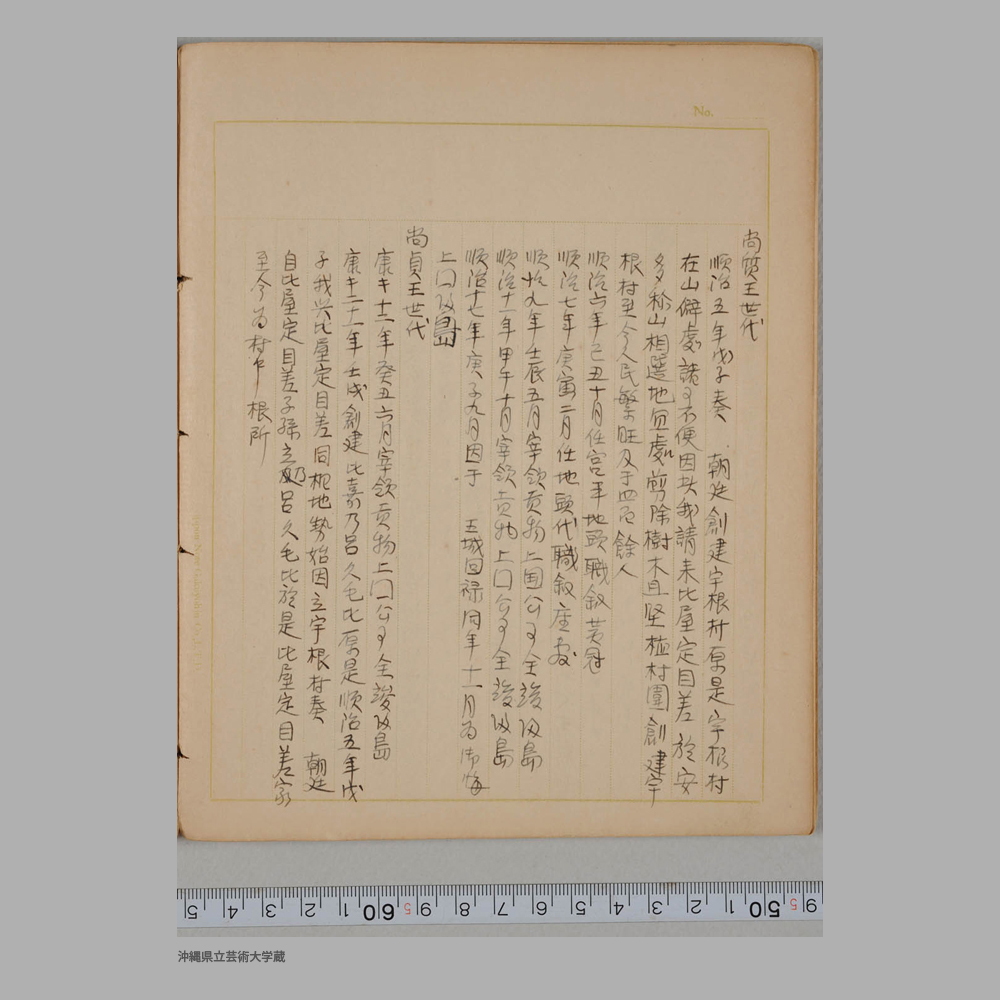 No.
尚質王世代
順治五年戊子奏 朝廷創建宇根村原是宇根村
在山僻處諸事不便因此我請来比屋定目差於安
多於山相選地宜處剪除樹木且堅植村圍創建宇
根村至今人民繁旺及于四百餘人
順治六年己丑十月任宮平地頭職叙黄冠
順治七年庚寅二月任地頭代職叙座敷
順治九年壬辰五月宰領貢物上国公事全竣归島
順治十一年甲午十月宰領貢物上国公事全竣归島
順治十七年庚子九月因于 王城回禄同年十一月為御悔
上国归島
尚貞王世代
康キ十二年癸丑六月宰領貢物上国公事全竣归島
康キ二十一年壬戌創建比嘉乃呂久毛比原是順治五年戊
子我兴比屋定目差同相地勢始因立宇根村奏 朝廷
自比屋定目差子孫立乃呂久毛比於是比屋定目差家
至今為村中根所
5 4 3 2 1 60 5 9 8 7 6 5 4 3 2 1 50 5 9
沖縄県立芸術大学蔵